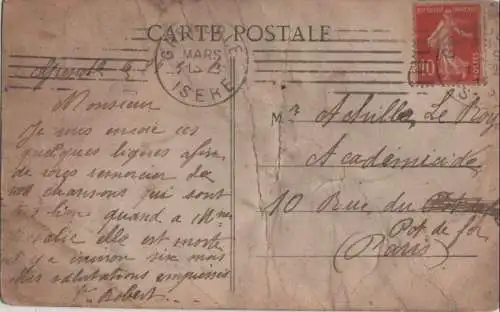 CARTE POSTALE
GRENOBLE
MARS
ISERE
10
Grenoble
Monsieur
Je vous envoie ces
quelques lignes afin
de vous remercier de
vos chansons qui sont
très bien quand a Mme
elle est morte
il y a environ six mois
Mes salutations empressées
Robert
Mr Achille Le Roy
Académicide
10 Rue du
Pot de fer
(Paris)